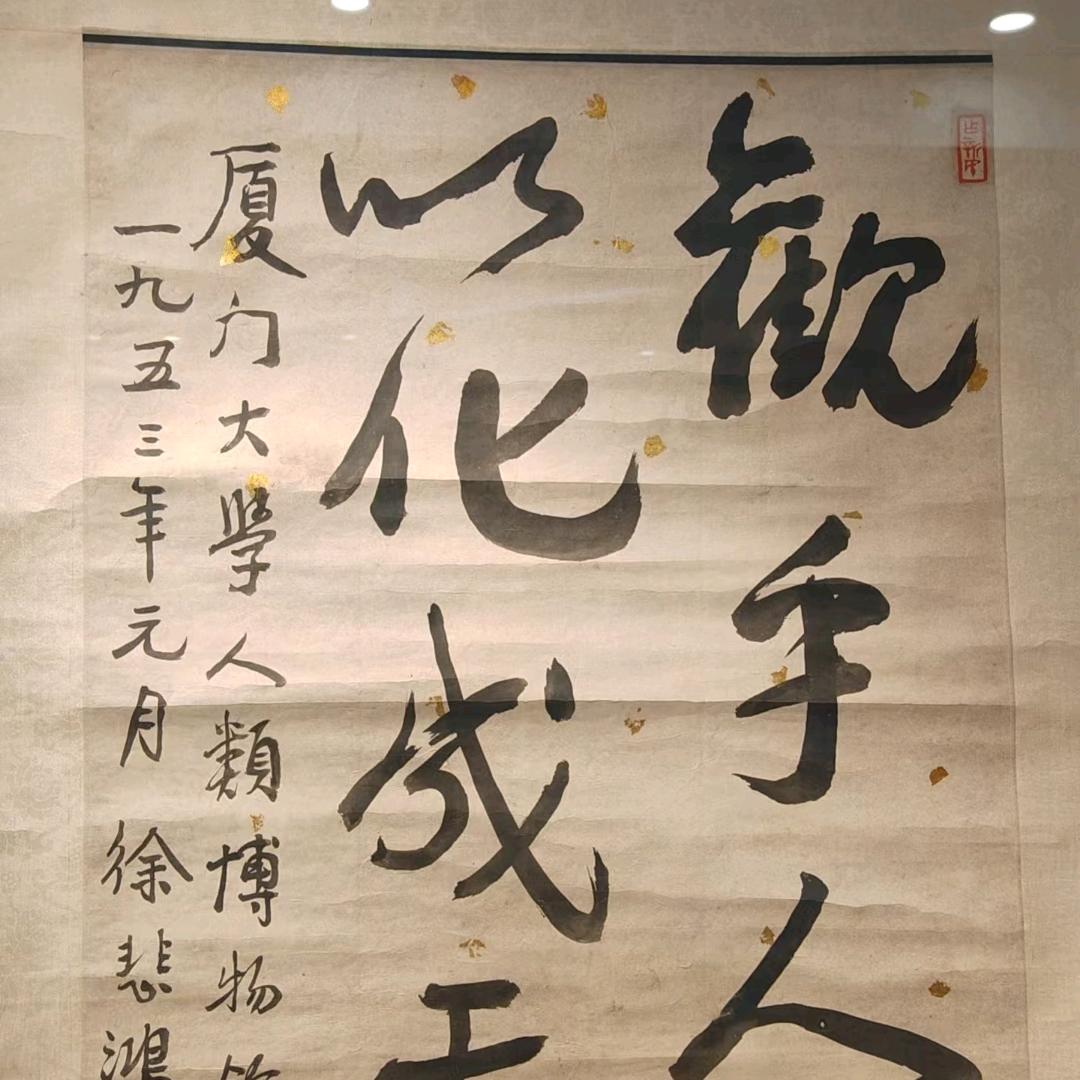 觀乎人
以化成天
厦门大學人類博物
一九五三年元月 徐悲鴻